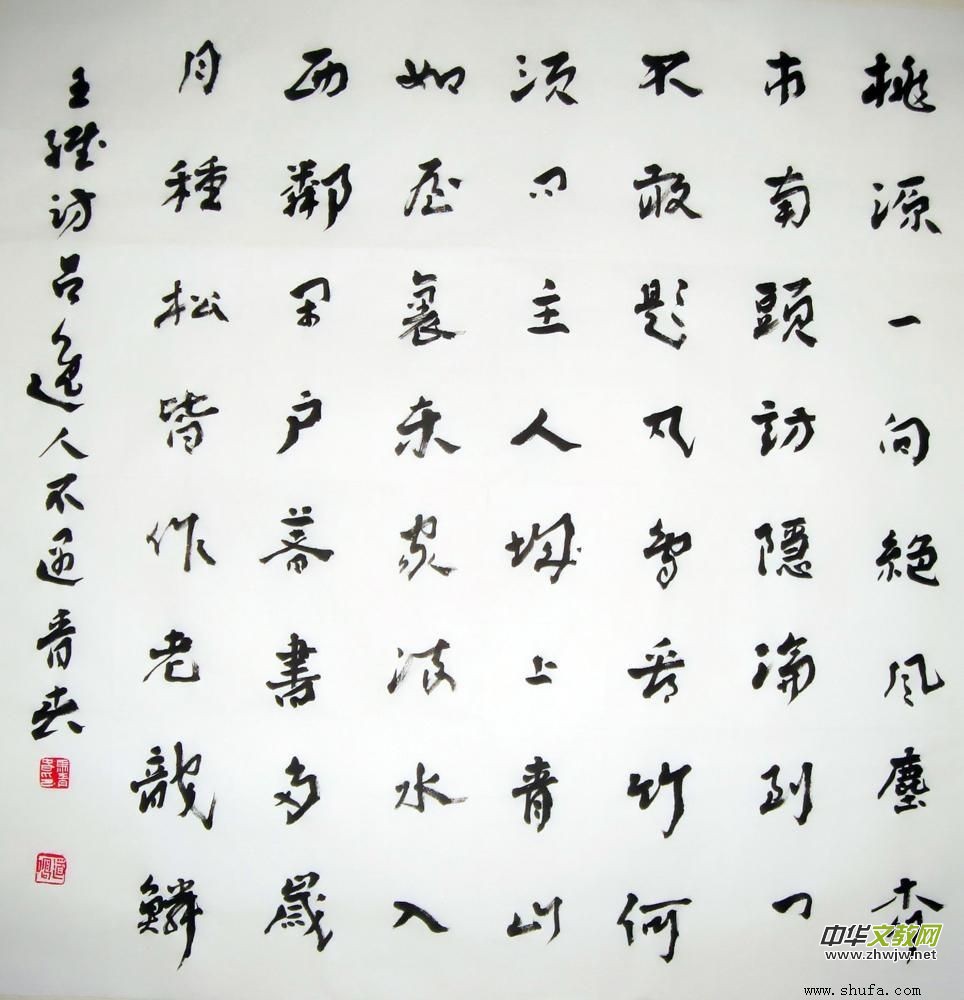 桃源一向絕风塵柳
市南頭訪隱淪到门
不敢題凡鸟看竹何
须问主人城上青山
如屋裏东家流水入
西鄰闭户著書多歲
月種松皆作老龍鱗
王維访吕逸人不遇
中华文教网
www.zhwjw.net
www.shufa.com